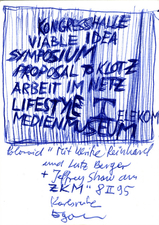 KONGRESSHALLE
VIABLE IDEA
SYMPOSIUM
PROPOSAL TO KLOTZ
ARBEIT IM NETZ
LIFESTYLE T
TELEKOM
MEDIENMUSEUM
"Mit Wenke Reinhard
und Lutz Berger
+ Jeffrey Shaw am
ZKM" 8 II 95
Karlsruhe